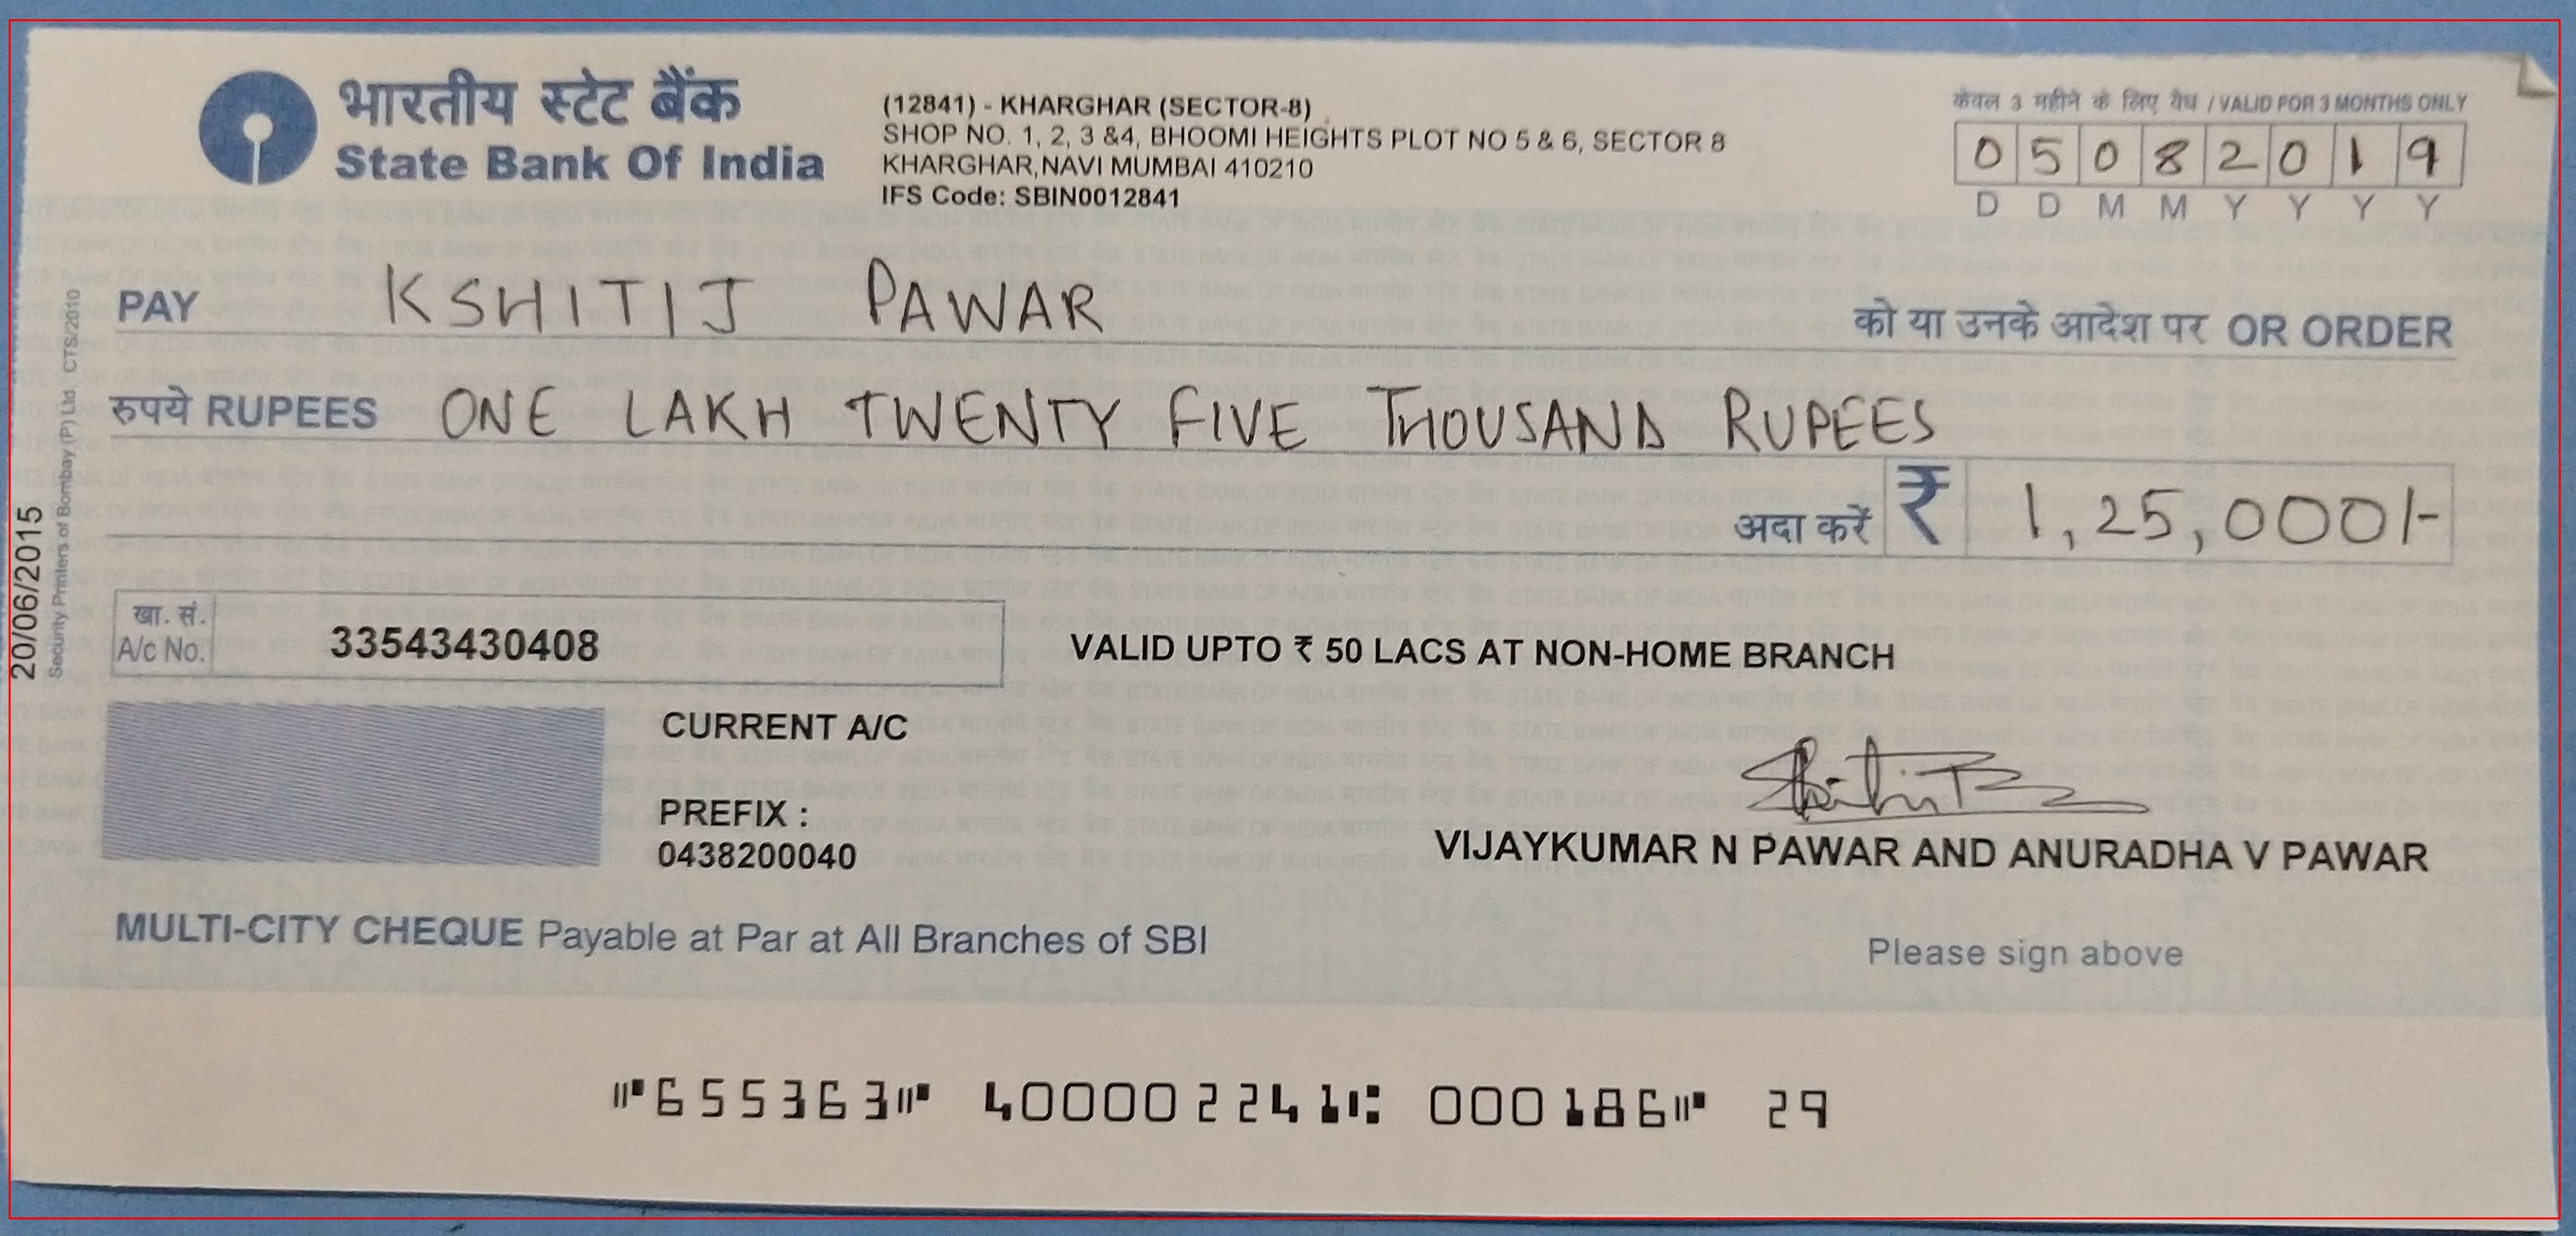 भारतीय स्टेट बैंक
State Bank Of India
(12841) - KHARGHAR (SECTOR-8)
SHOP NO. 1, 2, 3 &4, BHOOMI HEIGHTS PLOT NO 5 & 6, SECTOR 8
KHARGHAR,NAVI MUMBAI 410210
IFS Code: SBIN0012841
केवल 3 महीने के लिए वैध / VALID FOR 3 MONTHS ONLY
0 5 0 8 2 0 1 9
D D M M Y Y Y Y
PAY KSHITIJ PAWAR को या उनके आदेश पर OR ORDER
रुपये RUPEES ONE LAKH TWENTY FIVE THOUSAND RUPEES
अदा करें ₹ 1,25,000/-
20/06/2015
Security Printers of Bombay (P) Ltd CTS/2010
खा. सं.
A/c No. 33543430408
VALID UPTO ₹ 50 LACS AT NON-HOME BRANCH
CURRENT A/C
PREFIX :
0438200040
VIJAYKUMAR N PAWAR AND ANURADHA V PAWAR
MULTI-CITY CHEQUE Payable at Par at All Branches of SBI
Please sign above
⑈655363⑈ 400002241⑆ 000186⑈ 29